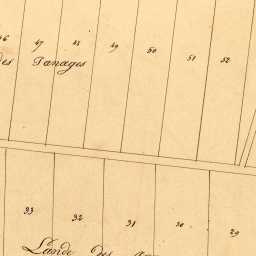 46 47 48 49 50 51 52
des Tanages
33 32 31 30 29
Lande des